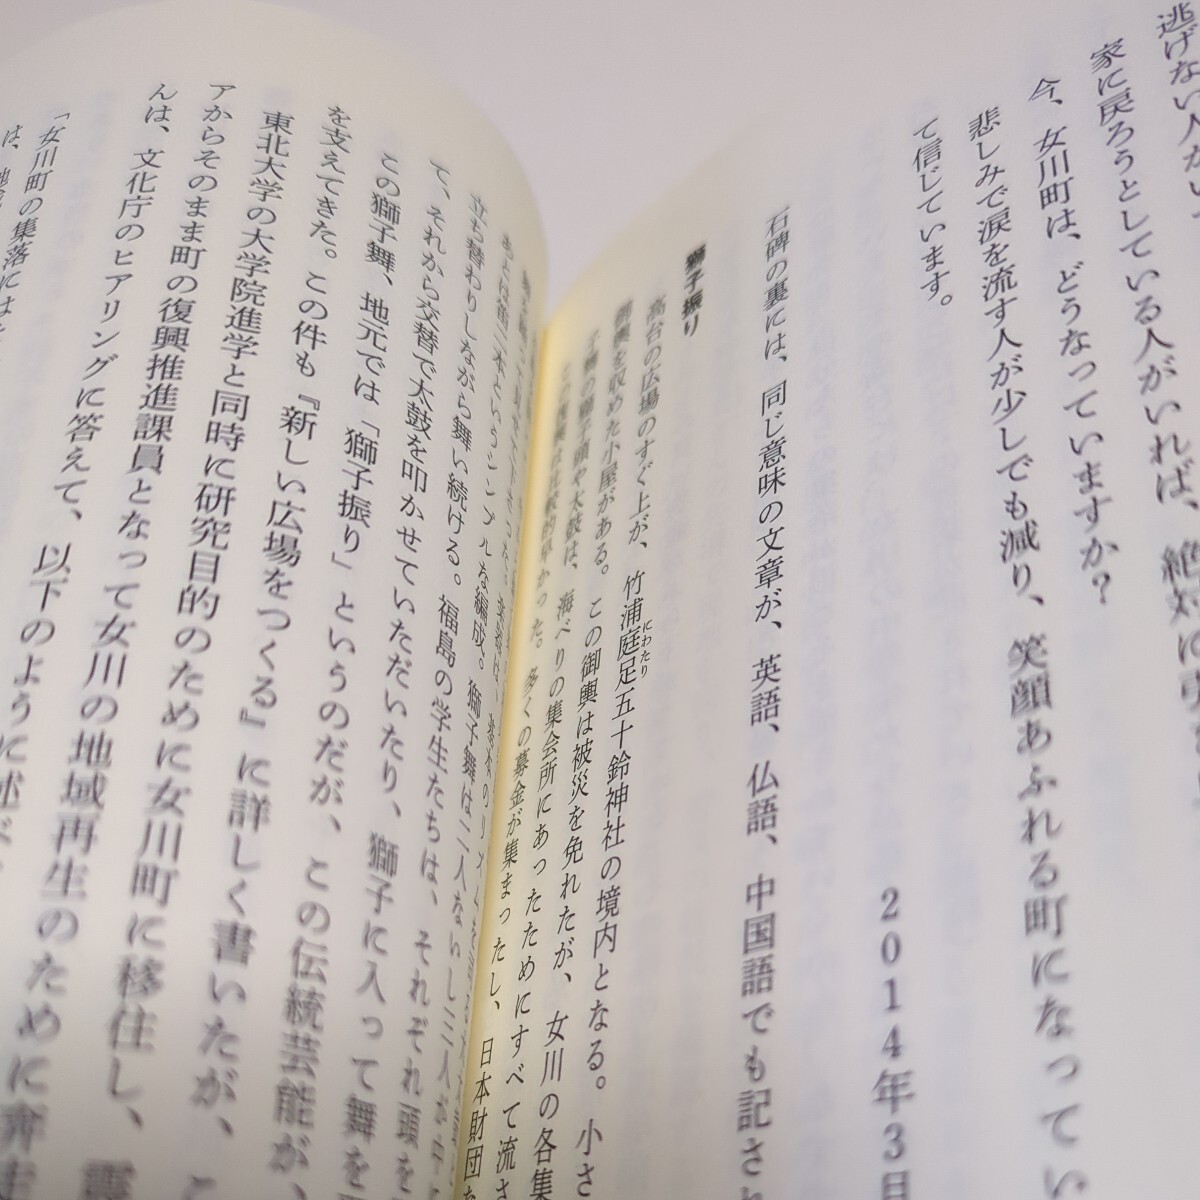 逃げない人がい
家に戻ろうとしている人がいれば、絶対に引
今、女川町は、どうなっていますか？
悲しみで涙を流す人が少しでも減り、笑顔あふれる町になってい
て信じています。
2014年3月
石碑の裏には、同じ意味の文章が、英語、仏語、中国語でも記され
獅子振り
高台の広場のすぐ上が、竹浦庭足五十鈴神社の境内となる。小さ
にわたり
御輿を収めた小屋がある。この御輿は被災を免れたが、女川の各集
の獅子頭や太鼓は、海べりの集会所にあったためにすべて流さ
この復興は比較的早かった。多くの募金が集まったし、日本財団
あとは笛二本というシンプルな編成。獅子舞は二人ないし三人が中
立ち替わりしながら舞い続ける。福島の学生たちは、それぞれ頭を
て、それから交替で太鼓を叩かせていただいたり、獅子に入って舞を
この獅子舞、地元では「獅子振り」というのだが、この伝統芸能が、
を支えてきた。この件も『新しい広場をつくる』に詳しく書いたが、こ
東北大学の大学院進学と同時に研究目的のために女川町に移住し、震
アからそのまま町の復興推進課員となって女川の地域再生のために奔走
んは、文化庁のヒアリングに答えて、以下のように述べ
「女川町の集落には
は、地